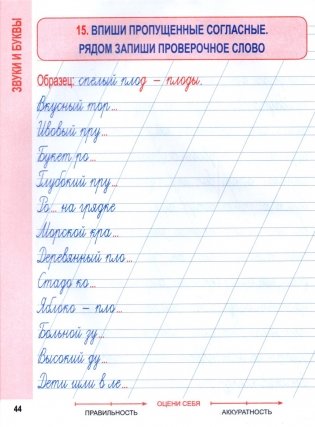 ЗВУКИ И БУКВЫ
15. ВПИШИ ПРОПУЩЕННЫЕ СОГЛАСНЫЕ.
РЯДОМ ЗАПИШИ ПРОВЕРОЧНОЕ СЛОВО
Образец: спелый плод – плоды.
Вкусный тор...
Ивовый пру...
Букет ро...
Глубокий пру...
Ро... на грядке
Морской кра...
Деревянный пло...
Стадо ко...
Яблоко – пло...
Больной зу...
Высокий ду...
Дети шли в ле...
ОЦЕНИ СЕБЯ
44 ПРАВИЛЬНОСТЬ АККУРАТНОСТЬ